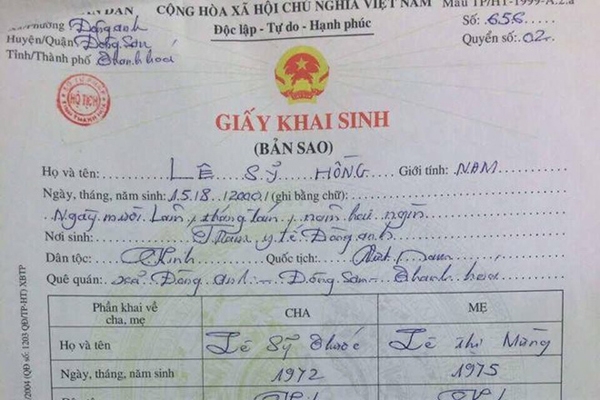 AN DAN CỘNG HÒA XÃ HỘI CHỦ NGHĨA VIỆT NAM Mẫu TP/HT-1999-A.2.a
Độc lập - Tự do - Hạnh phúc
Số: 656
Xã/Phường Đông anh
Huyện/Quận Đông Sơn
Quyển số: 02
Tỉnh/Thành phố Thanh hoá
HỘ TỊCH
GIẤY KHAI SINH
(BẢN SAO)
Họ và tên: LÊ SỸ HỒNG Giới tính: NAM
Ngày, tháng, năm sinh: 15/8/2000 (ghi bằng chữ)
Ngày mười lăm, tháng tám, năm hai ngìn
Nơi sinh: Trạm y tế Đông anh
Dân tộc: Kinh Quốc tịch: Việt Nam
Quê quán: xã Đông anh - Đông Sơn - Thanh hoá
Phần khai về cha, mẹ CHA MẸ
Họ và tên Lê Sỹ Thước Lê Thị Măng
Ngày, tháng, năm sinh 1972 1975
/2004 (QĐ số: 1203 QĐ/TP-HT) XBTP